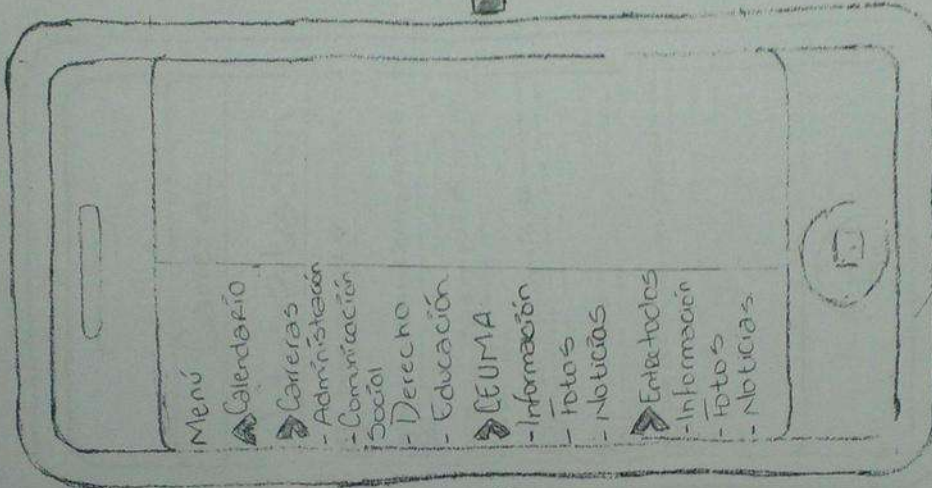 Menú
Calendario
Carreras
- Administración
- Comunicación
Social
- Derecho
- Educación
CEUMA
- Información
- Fotos
- Noticias
Entectados
- Información
- Fotos
- Noticias.